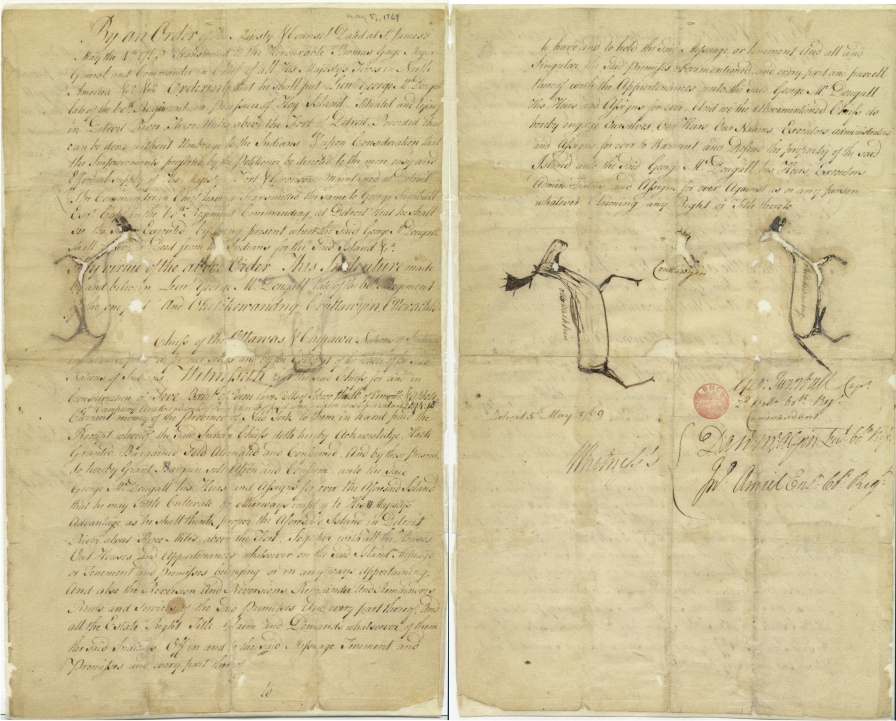 May 5, 1769
By an Order of His Majesty & Counsel Dated at St. James's
May the 4th 1768 Transmitted to the Honourable Thomas Gage Major
General and Commander in Chief of all His Majesty's Forces in North
America &c. &c. Ordering that he shall put Lieut George McDougall
late of the 60th Regiment in Possession of Hog Island Situated and lying
in Detroit River Three Miles above the Fort of Detroit Provided that
can be done without Umbrage to the Indians & Upon Consideration that
the Improvements projected by the Petitioner be directed to the more easy and
Effectual supply of His Majesty's Fort & Garrison Maintained at Detroit
The Commander in Chief having Transmitted the same to George Turnbull
Esqr Captn in the 60th Regiment Commanding at Detroit that he shall
see the same Executed by being present when the said George McDougall
shall a Deed from the Indians for the said Island &c.
By virtue of the above Order This Indenture made
by and between Lieut George McDougall late of the 60th Regiment
of the one part And Oketchewandng Couttawyin Ottowachkin
Chiefs of the Ottawas & Chipawa Nations of Indians
our selves and by the Consent of the whole of said
Nations of Indians Witnesseth that the said Chiefs for and in
Consideration of Five Barrels of Rum three rolls of Tobacco
Current money of the Province of New York to them in hand paid the
Receipt whereof the said Indian Chiefs doth hereby Acknowledge Hath
Granted Bargained Sold Alienated and Confirmed And by these presents
do hereby Grant Bargain sell Alien and Confirm unto the said
George McDougall his Heirs and Assigns for ever the Aforesaid Island
that he may Settle Cultivate or otherways imploy to His Majesty's
Advantage as he shall think proper the Aforesaid Island in Detroit
River about three Miles above the Fort. Together with all the Houses
Out Houses and Appurtenances whatsoever on the said Island Messuage
or Tenement and premisses belonging or in any ways Appertaining
And also the Reversion And Reversions Remainder And Remainders
Rents and Services of the said Premisses And every part thereof And
all the Estate Right Title Claim and Demands whatsoever of them
the said Indians Off in and to the said Messuage Tenement and
Premisses and every part thereof
to
to have and to hold the said Message or Tenement And all and
Singular the Said Premisses Abovementioned and every part and parcell
thereof with the Appurtenances unto the said George McDougall
His Heirs and Assigns for ever. And we the Abovementioned Chiefs do
hereby engage Ourselves, Our Heirs, Our Nations, Executors administrators
and Assigns for ever to Warrant and Defend the property of the said
Island unto the said George McDougall his Heirs, Executors
Administrators and Assigns for ever Against us or any person
whatever Claiming any Right or Title thereto
Couttawyin
Geo: Turnbull Captn
2d Battn 60th Regt
Commandant
Detroit 5th May 1769
Witness's
Dan McAlpin Lieut 60th Regt
Jno Amiel Ensn 60 Regt